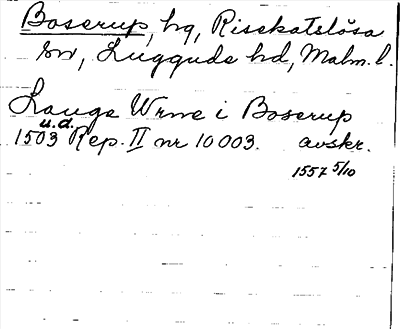 Boserup, hg, Risekatslösa
sn, Luggude hd, Malm. l.
Lauge Wrne i Boserup
u.d.
1503 Rep. II nr 10003. avskr.
1557 5/10